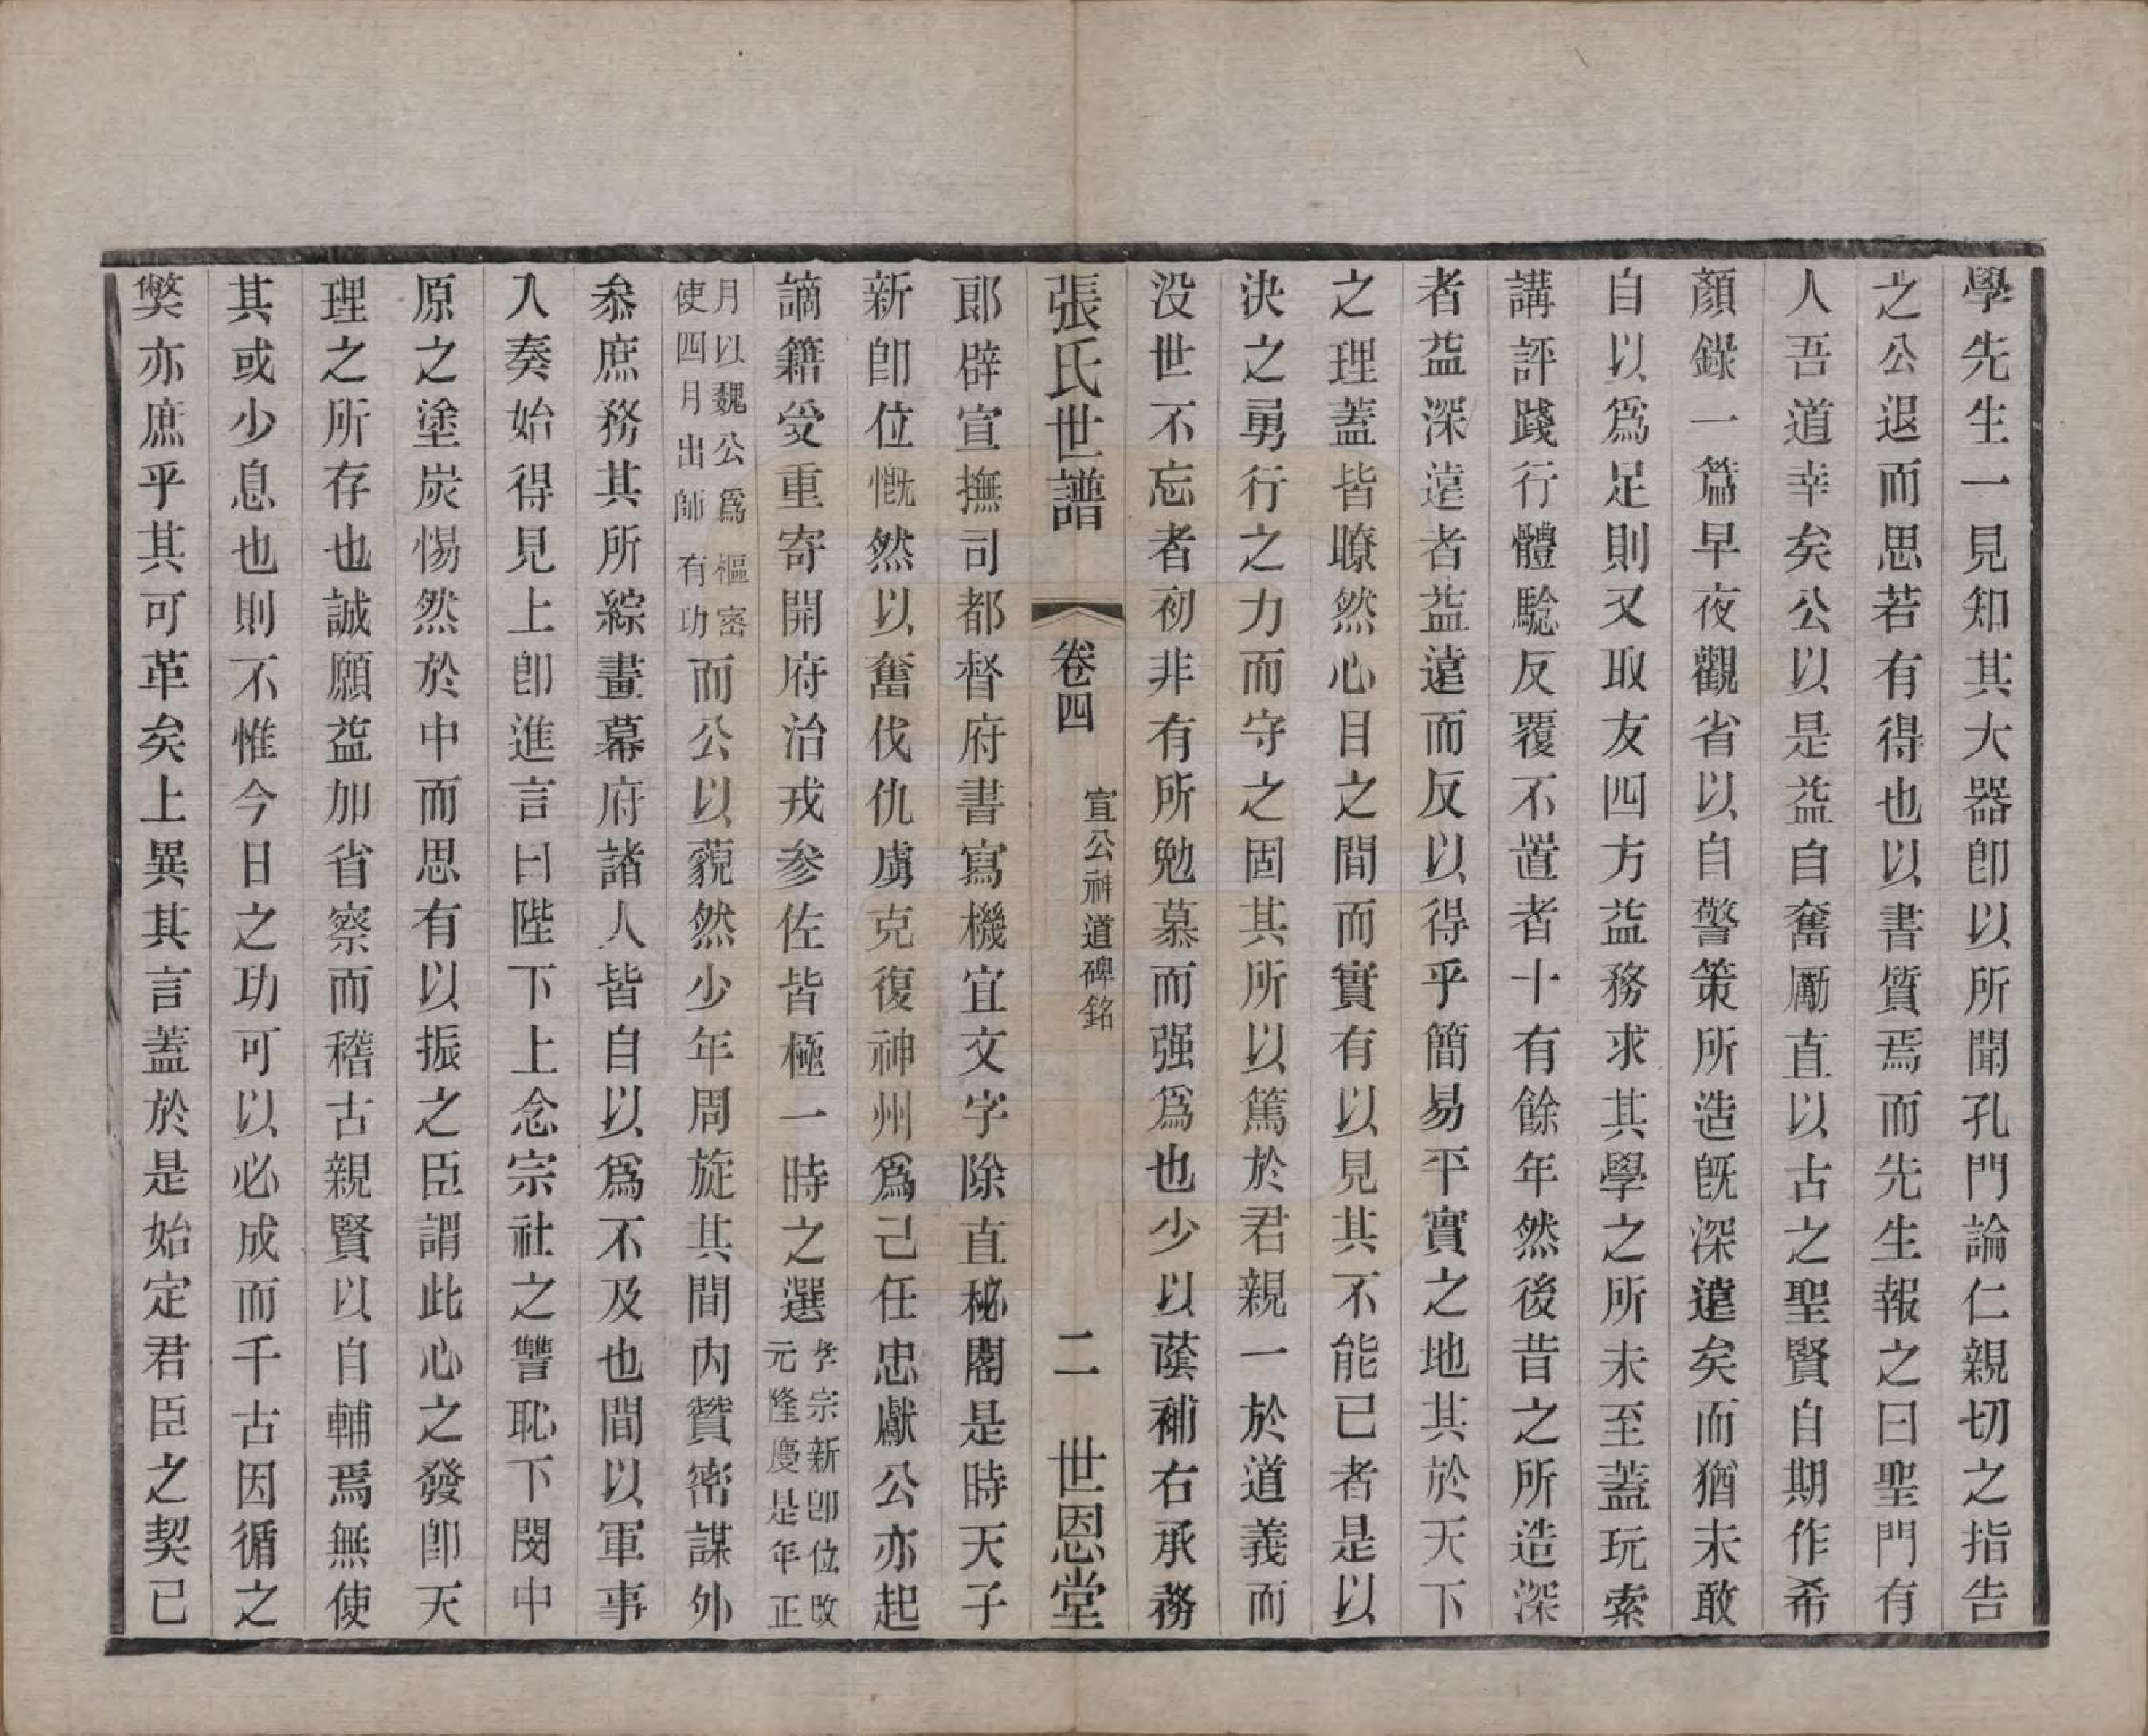 學先生一見知其大器卽以所聞孔門論仁親切之指告
之公退而思若有得也以書質焉而先生報之曰聖門有
人吾道幸矣公以是益自奮勵直以古之聖賢自期作希
顏錄一篇早夜觀省以自警策所造旣深遠矣而猶未敢
自以爲足則又取友四方益務求其學之所未至蓋玩索
講評踐行體驗反覆不置者十有餘年然後昔之所造深
者益深遠者益遠而反以得乎簡易平實之地其於天下
之理蓋皆瞭然心目之間而實有以見其不能已者是以
決之勇行之力而守之固其所以篤於君親一於道義而
没世不忘者初非有所勉慕而强爲也少以蔭補右承務
張氏世譜 卷四 宣公神道碑銘 二 世恩堂
郞辟宣撫司都督府書寫機宜文字除直秘閣是時天子
新卽位慨然以奮伐仇虜克復神州爲己任忠獻公亦起
謫籍受重寄開府治戎參佐皆極一時之選孝宗新卽位改元隆慶是年正
月以魏公爲樞密使四月出師有功而公以藐然少年周旋其間內贊密謀外
叅庶務其所綜畫幕府諸人皆自以爲不及也間以軍事
入奏始得見上卽進言曰陛下上念宗社之讐恥下閔中
原之塗炭惕然於中而思有以振之臣謂此心之發卽天
理之所存也誠願益加省察而稽古親賢以自輔焉無使
其或少息也則不惟今日之功可以必成而千古因循之
獘亦庶乎其可革矣上異其言蓋於是始定君臣之契已